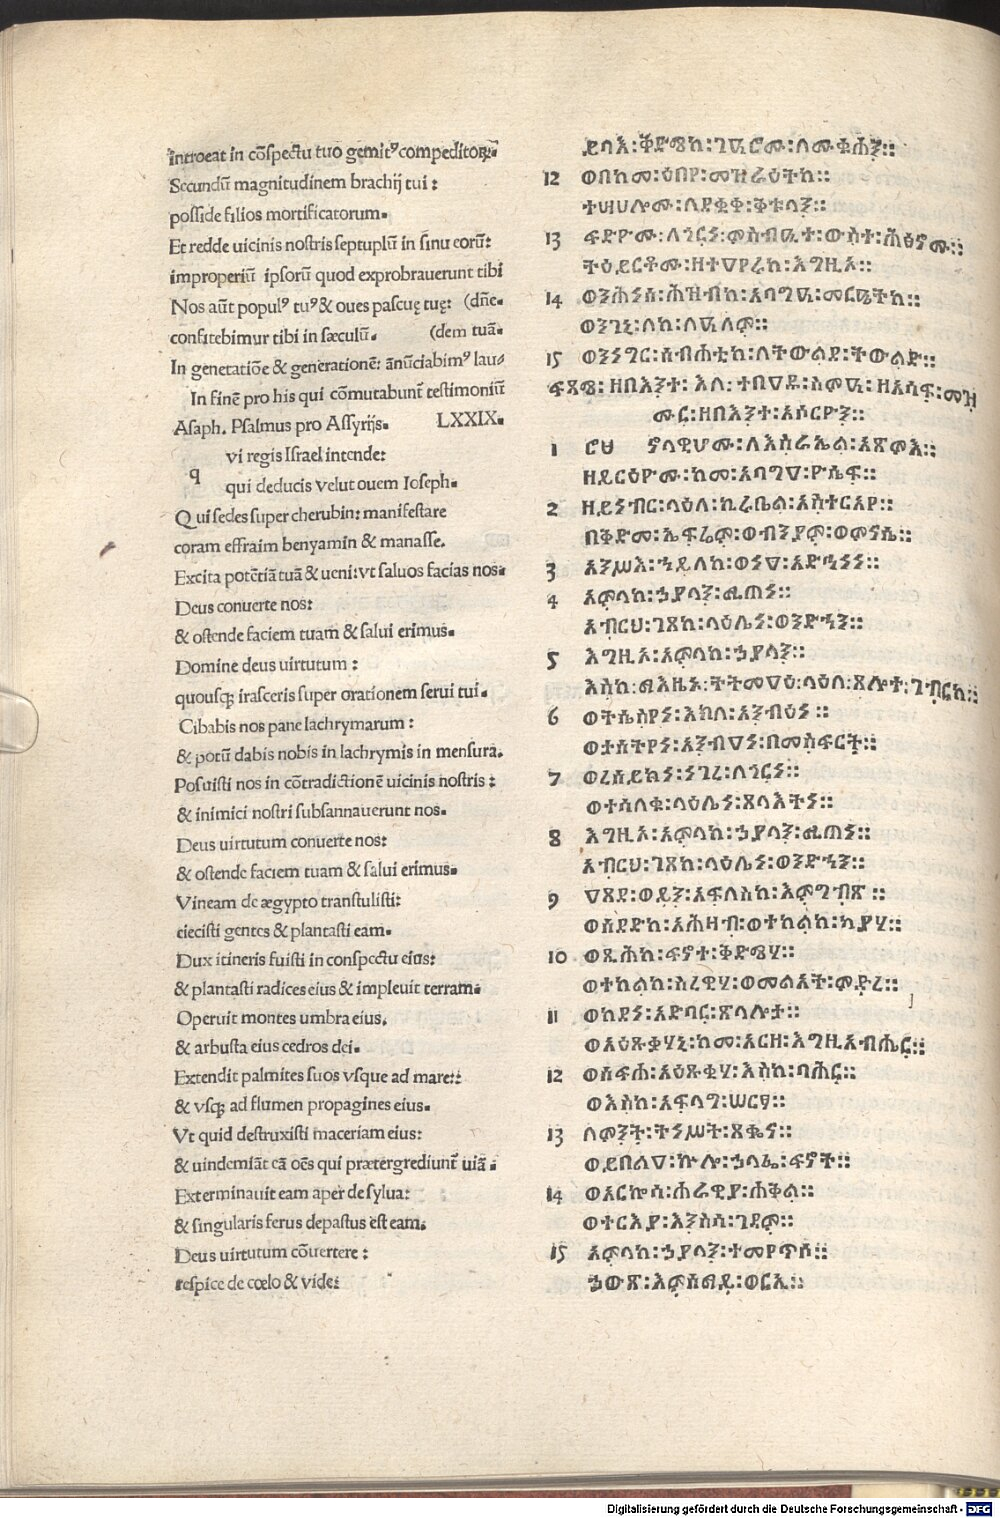 Introeat in cōspectu tuo gemitꝰ compeditoꝝ.
Secundū magnitudinem brachij tui:
posside filios mortificatorum.
Et redde uicinis nostris septuplū in sinu eorū:
improperiū ipsorū quod exprobrauerunt tibi
Nos aūt populꝰ tuꝰ & oues pascuę tuę: (dñe.
confitebimur tibi in sæculū. (dem tuā.
In generatiōe & generationē: ānūciabimꝰ lau-
In finē pro his qui cōmutabunt̄ testimoniū
Asaph. Psalmus pro Assyrijs. LXXIX.
q vi regis Israel intende:
qui deducis velut ouem Ioseph.
Qui sedes super cherubin: manifestare
coram effraim benyamin & manasse.
Excita potētiā tuā & ueni: vt saluos facias nos.
Deus conuerte nos:
& ostende faciem tuam & salui erimus.
Domine deus uirtutum:
quousqꝫ irasceris super orationem serui tui.
Cibabis nos pane lachrymarum:
& potū dabis nobis in lachrymis in mensura.
Posuisti nos in cōtradictionē uicinis nostris:
& inimici nostri subsannauerunt nos.
Deus uirtutum conuerte nos:
& ostende faciem tuam & salui erimus.
Vineam de ægypto transtulisti:
eiecisti gentes & plantasti eam.
Dux itineris fuisti in conspectu eius:
& plantasti radices eius & impleuit terram.
Operuit montes umbra eius.
& arbusta eius cedros dei.
Extendit palmites suos vsque ad mare:
& vsqꝫ ad flumen propagines eius.
Vt quid destruxisti maceriam eius:
& uindemiāt eā oēs qui prætergrediunt̄ uiā.
Exterminauit eam aper de sylua:
& singularis ferus depastus est eam.
Deus uirtutum cōuertere:
respice de cœlo & vide:
ይባእ፡ቅድሜከ፡ገዓሮሙ፡ለሙቁሓን።
12 ወበከመ፡ዕበየ፡መዝራዕትከ።
ተሣሀሎሙ፡ለደቂቀ፡ቅቱላን።
13 ፍድዮሙ፡ለጎርነ፡ምስብዒተ፡ውስተ፡ሕፅኖሙ።
ትዕይርቶሙ፡ዘተዐየሩከ፡እግዚኦ።
14 ወንሕነሰ፡ሕዝብከ፡አባግዒ፡መርዔትከ።
ወንገኒ፡ለከ፡ለዓለም።
15 ወንነግር፡ስብሐቲከ፡ለትውልደ፡ትውልድ።
ፍጻሜ፡ዘበእንተ፡እለ፡ተበዐዱ፡ስምዒ፡ዘአሳፍ፡መዝ
ሙር፡ዘበእንተ፡አሶርየን።
1 ኖላዊሆሙ፡ለእስራኤል፡አጽምእ።
ዘይርዕዮሙ፡ከመ፡አባግዐ፡ዮሴፍ።
2 ዘይነብር፡ላዕለ፡ኪሩቤል፡አስተርአየ።
በቅድመ፡ኤፍሬም፡ወብንያም፡ወምናሴ።
3 አንሥእ፡ኀይለከ፡ወነዐ፡አድኅነነ።
4 አምላከ፡ኃያላን፡ሚጠነ።
አብርህ፡ገጸከ፡ላዕሌነ፡ወንድኅን።
5 እግዚኦ፡አምላከ፡ኃያላን።
እስከ፡ማእዜኑ፡ትትመዐዕ፡ላዕለ፡ጸሎተ፡ገብርከ።
6 ወትሴስየነ፡እክለ፡አንብዕነ።
ወተሰትየነ፡አንብዐነ፡በመስፈርት።
7 ወረሰይከነ፡ነገረ፡ለጎርነ።
ወተሳለቁ፡ላዕሌነ፡ጸላእትነ።
8 እግዚኦ፡አምላከ፡ኃያላን፡ሚጠነ።
አብርህ፡ገጸከ፡ላዕሌነ፡ወንድኅን።
9 ዐጸደ፡ወይን፡አፍለስከ፡እምግብጽ።
ወሰደድከ፡አሕዛበ፡ወተከልከ፡ኪያሃ።
10 ወጼሕከ፡ፍኖተ፡ቅድሜሃ።
ወተከልከ፡ሥረዊሃ፡ወመልአት፡ምድረ።
11 ወከደነ፡አድባር፡ጽላሎታ።
ወአዕጹቂሃኒ፡ከመ፡አርዘ፡እግዚአብሔር።
12 ወሰፍሐ፡አዕጹቂሃ፡እስከ፡ባሕር።
ወእስከ፡አፍላግ፡ሠርፃ።
13 ለምንት፡ትነሥት፡ጸቈና።
ወይበልዐ፡ኵሉ፡ኃላፌ፡ፍኖት።
14 ወአርኰሳ፡ሐራውያ፡ሐቅል።
ወተርእያ፡እንስሳ፡ገዳም።
15 አምላከ፡ኃያላን፡ተመየጥሰ።
ኀውጽ፡እምሰማይ፡ወርኢ።
Digitalisierung gefördert durch die Deutsche Forschungsgemeinschaft - DFG